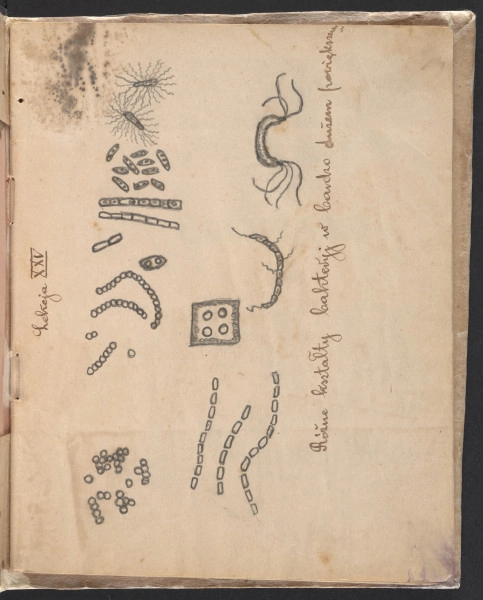 Lekcja XXV
Różne kształty bakteryj w bardzo dużem powiększen.